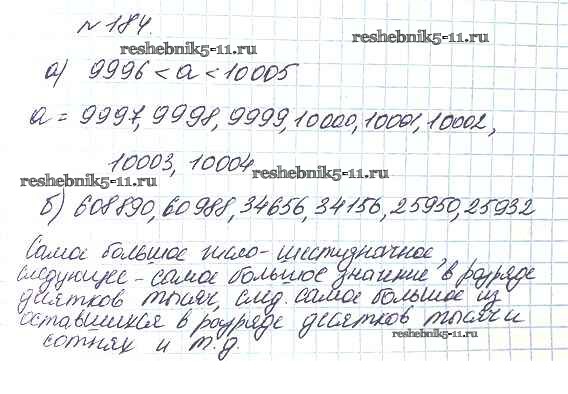 №184.
reshebnik5-11.ru
reshebnik5-11.ru
а) 9996 < а < 10005
а = 9997, 9998, 9999, 10000, 10001, 10002,
10003, 10004
reshebnik5-11.ru
reshebnik5-11.ru
б) 608890, 60988, 34656, 34156, 25950, 25932
Самое большое число - шестизначное,
следующее - самое большое значение в разряде
десятков тысяч, след. самое большое из
оставшихся в разряде десятков тысяч и
reshebnik5-11.ru
сотнях и т.д.